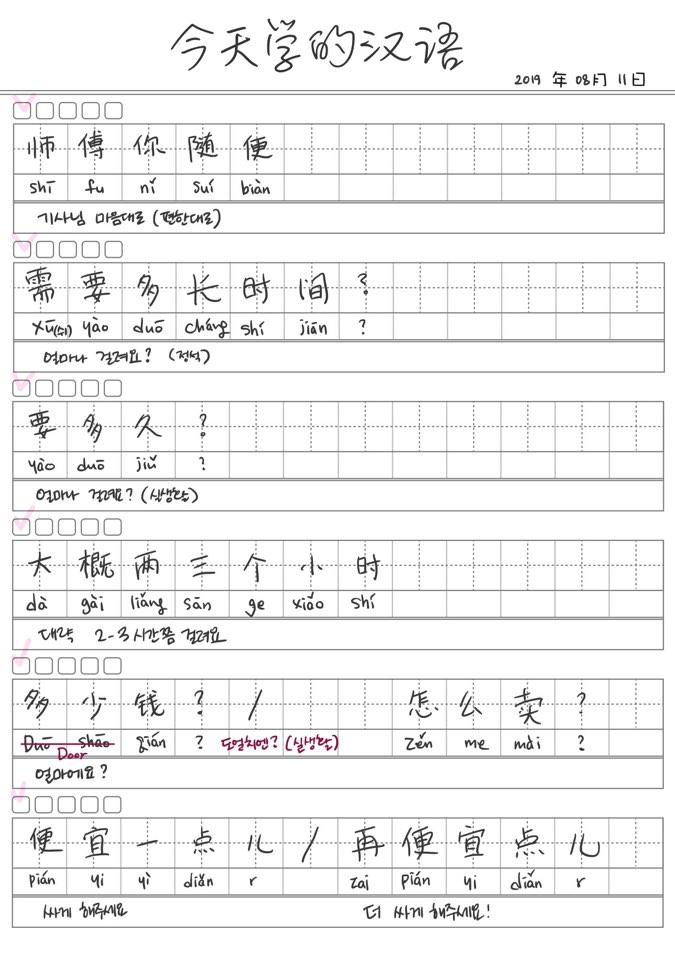 今天学的汉语
2019 年 08月 11日
师 傅 你 随 便
shī fu nǐ suí biàn
기사님 마음대로 (편한대로)
需 要 多 长 时 间 ?
xū(쉬) yào duō cháng shí jiān ?
얼마나 걸려요? (정석)
要 多 久 ?
yào duō jiǔ ?
얼마나 걸려요? (실생활)
大 概 两 三 个 小 时
dà gài liǎng sān ge xiǎo shí
대략 2-3시간쯤 걸려요
多 少 钱 ? / 怎 么 卖 ?
Duō shāo qián ? 도얼치엔? (실생활) zěn me mài ?
Door
얼마에요?
便 宜 一 点 儿 / 再 便 宜 点 儿
pián yi yì diǎn r zai pián yi diǎn r
싸게 해주세요 더 싸게 해주세요!